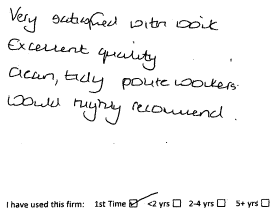 Very satisfied with work
Excellent quality
Clean, tidy polite workers.
Would highly recommend.
I have used this firm: 1st Time ☑ <2 yrs ☐ 2-4 yrs ☐ 5+ yrs ☐